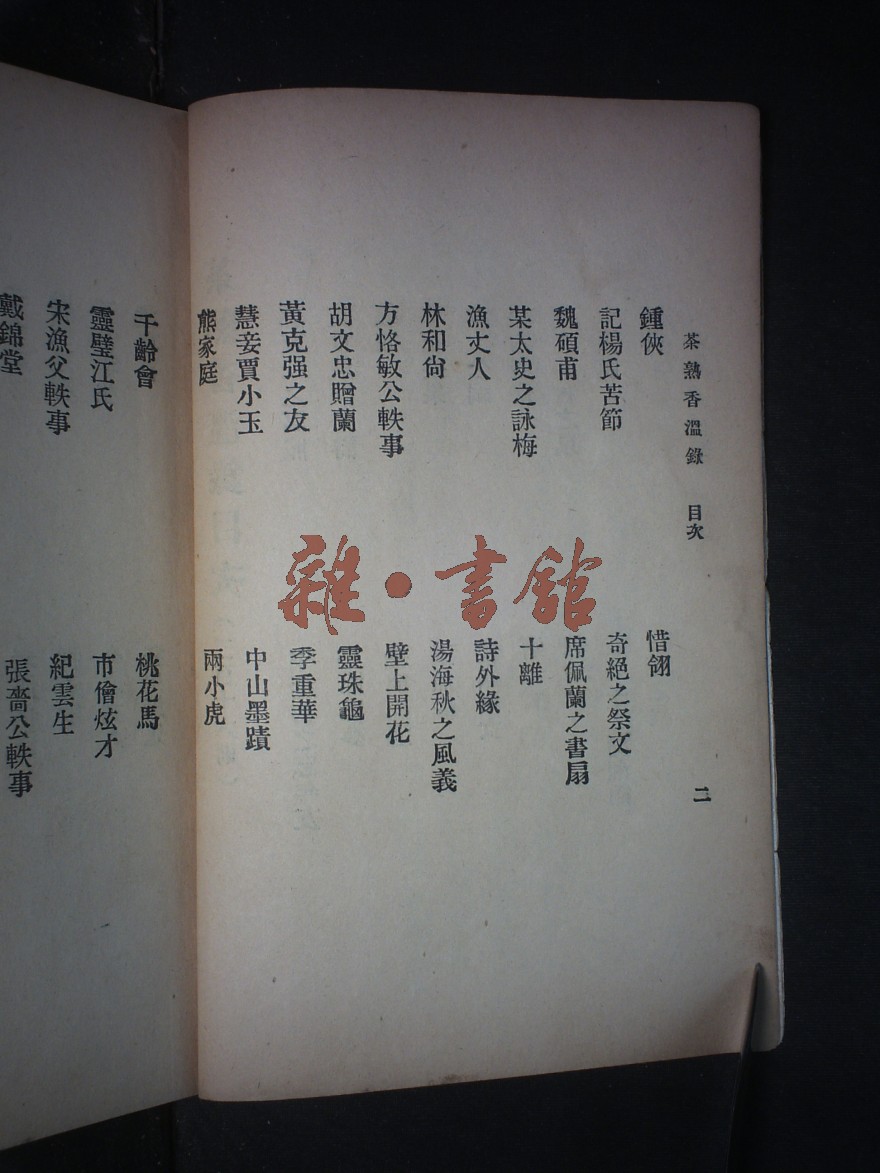 茶熟香溫錄　目次
二
鍾俠
惜翎
記楊氏苦節
奇絕之祭文
魏碩甫
席佩蘭之書扇
某太史之詠梅
十離
漁丈人
詩外緣
林和尙
湯海秋之風義
方恪敏公軼事
壁上開花
胡文忠贈蘭
靈珠龜
黃克强之友
季重華
慧妾賈小玉
中山墨蹟
熊家庭
兩小虎
千齡會
桃花馬
靈璧江氏
市儈炫才
宋漁父軼事
紀雲生
戴錦堂
張嗇公軼事
雜・書館